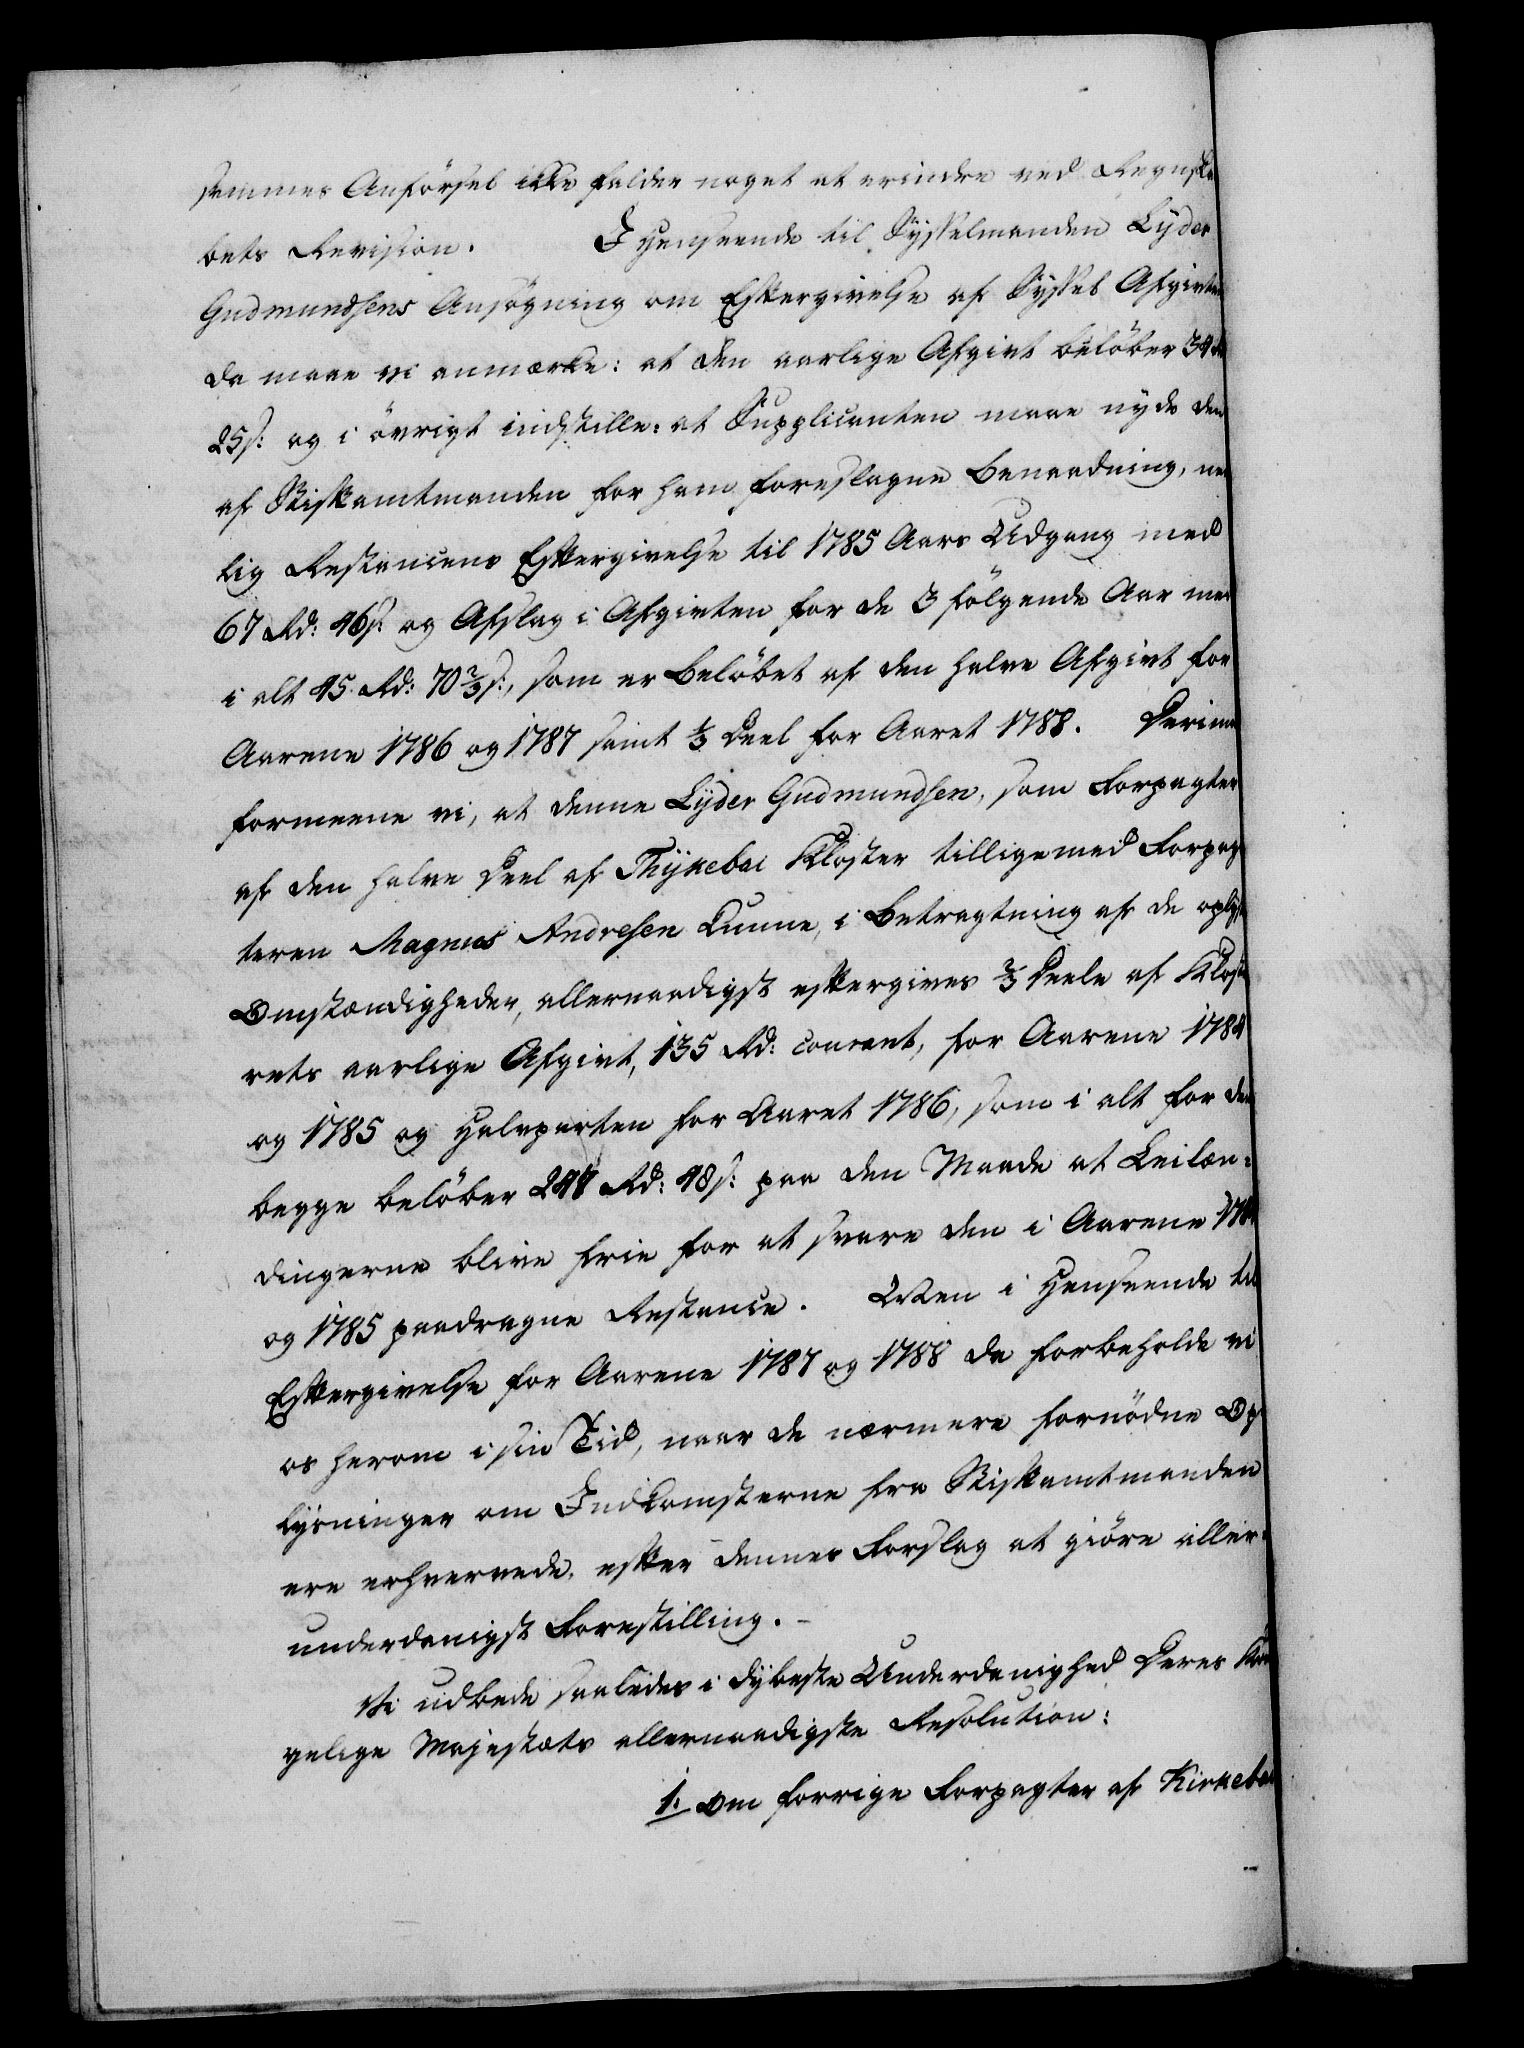 sammes Anförsel ikke falder noget at erindre ved Regnska
bets Revision. I Henseende til Sysselmanden Lyder
Gudmundsens Ansögning om Eftergivelse af Syssel Afgivten
da maae vi anmærke: at den aarlige Afgivt belöber 34
25 s: og i övrigt indstille: at Supplicanten maae nyde den
af Stiftamtmanden for ham foreslagne Benaadning, nem
lig Restancens Eftergivelse til 1785 Aars Udgang med
67 Rd: 46 s: og Afslag i Afgivten for de 3 fölgende Aar med
i alt 45 Rd: 70 2/3 s:, som er Belöbet af den halve Afgivt for
Aarene 1786 og 1787 samt 1/3 Deel for Aaret 1788. Derimod
formeene vi, at denne Lyder Gudmundsen, som Forpagter
af den halve Deel af Thykebai Kloster tilligemed Forpag
teren Magnus Andresen kunne, i Betragtning af de oplyste
Omstændigheder, allernaadigst eftergives 2/3 Deele af Kloste
rets aarlige Afgivt, 135 Rd: courant, for Aarene 1784
og 1785 og Halvparten for Aaret 1786, som i alt for dem
begge belöber 247 Rd: 48 s: paa den Maade at Leilæn-
dingerne blive frie for at svare den i Aarene 1784
og 1785 paadragne Restance. Men i Henseende til
Eftergivelse for Aarene 1787 og 1788 da forbeholde vi
os herom i sin Tid, naar de nærmere fornödne Op
lysninger om Indkomsterne fra Stiftamtmanden
ere erhvervede, efter dennes Forslag at giöre aller-
underdanigst Forestilling. -
Vi udbede saaledes i dybeste Underdanighed Deres Kon
gelige Majestæts allernaadigste Resolution:
1: Om forrige Forpagter af Kirkebai